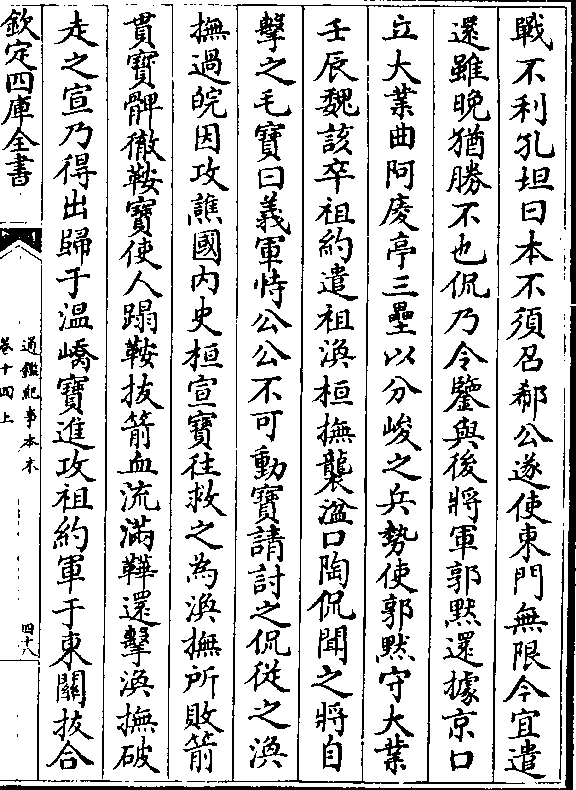 戰不利孔坦曰本不須召郗公遂使東門無限今宜遣
還雖晚猶勝不也侃乃令鑒與後將軍郭默還據京口
立大業曲阿庱亭三壘以分峻之兵勢使郭默守大業
壬辰魏該卒祖約遣祖渙桓撫襲湓口陶侃聞之將自
擊之毛寶曰義軍恃公公不可動寶請討之侃從之渙
撫過皖因攻譙國內史桓宣寶往救之為渙撫所敗箭
貫寶髀徹鞍寶使人蹋鞍拔箭血流滿鞾還擊渙撫破
走之宣乃得出歸于溫嶠寶進攻祖約軍于東關拔合
欽定四庫全書
通鑑紀事本末
卷十四上
四十八